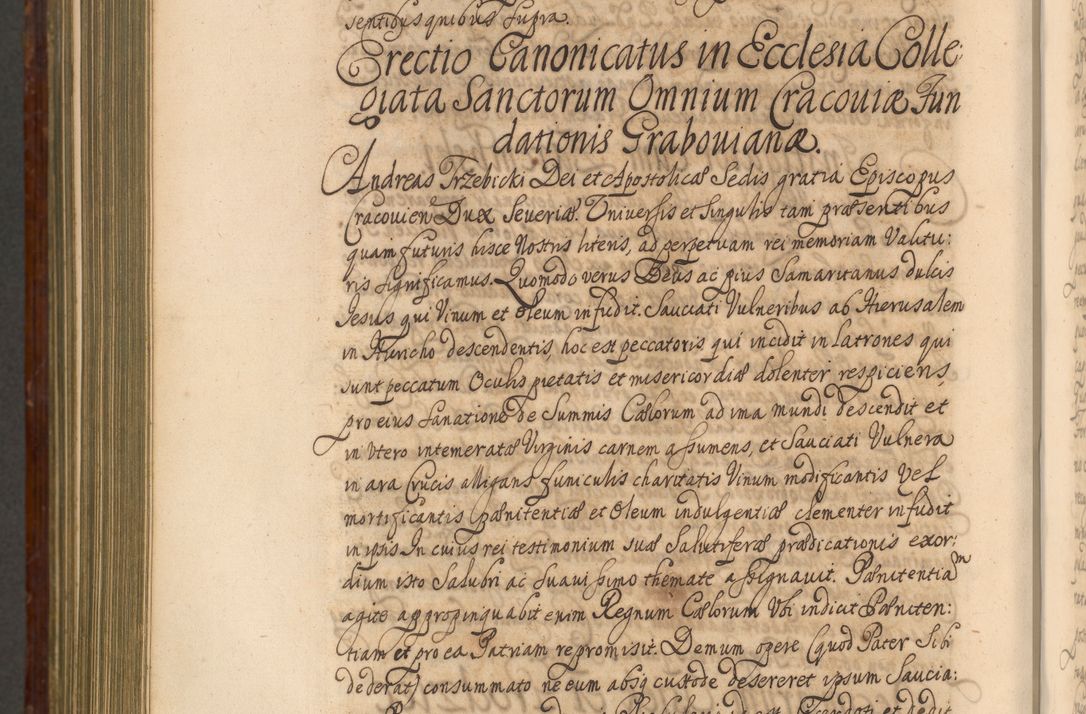 sentibus quibus supra.
Erectio Canonicatus in Ecclesia Colle:
giata Sanctorum Omnium Cracoviæ Fun
dationis Grabovianæ.
Andreas Trzebicki Dei et Apostolicæ Sedis gratia Episcopus
Cracovien Dux Severiæ. Universis et singulis tam præsentibus
quam futuris hisce Nostris literis, ad perpetuam rei memoriam Valitu:
ris significamus. Quomodo verus Deus ac pius Samaritanus dulcis
Jesus qui Vinum et Oleum infudit. Sauciati Vulneribus ab Hierusalem
in Hiericho descendentis, hoc est peccatoris qui incidit in Latrones qui
sunt peccatum Oculis pietatis et misericordiæ dolenter respiciens,
pro eius Sanatione de Summis Cælorum ad ima mundi descendit et
in Utero intemeratæ Virginis carnem assumens, et Sauciati Vulnera
in ara Crucis alligans funiculis charitatis Vinum modificantis Vel
mortificantis pænitentiæ et Oleum indulgentiæ clementer infudit
in ipsis In cuius rei testimonium suæ Salutiferæ prædicationis exor:
dium isto Salubri ac suavissimo themate assignavit. Pænitentiam
agite appropinquabit enim Regnum Cælorum Ubi indicit Pæniten:
tiam et pro ea Patriam repromisit. Demum opere (quod Pater Sibi
dederat) consummato ne eum absq custode desereret ipsum Saucia: